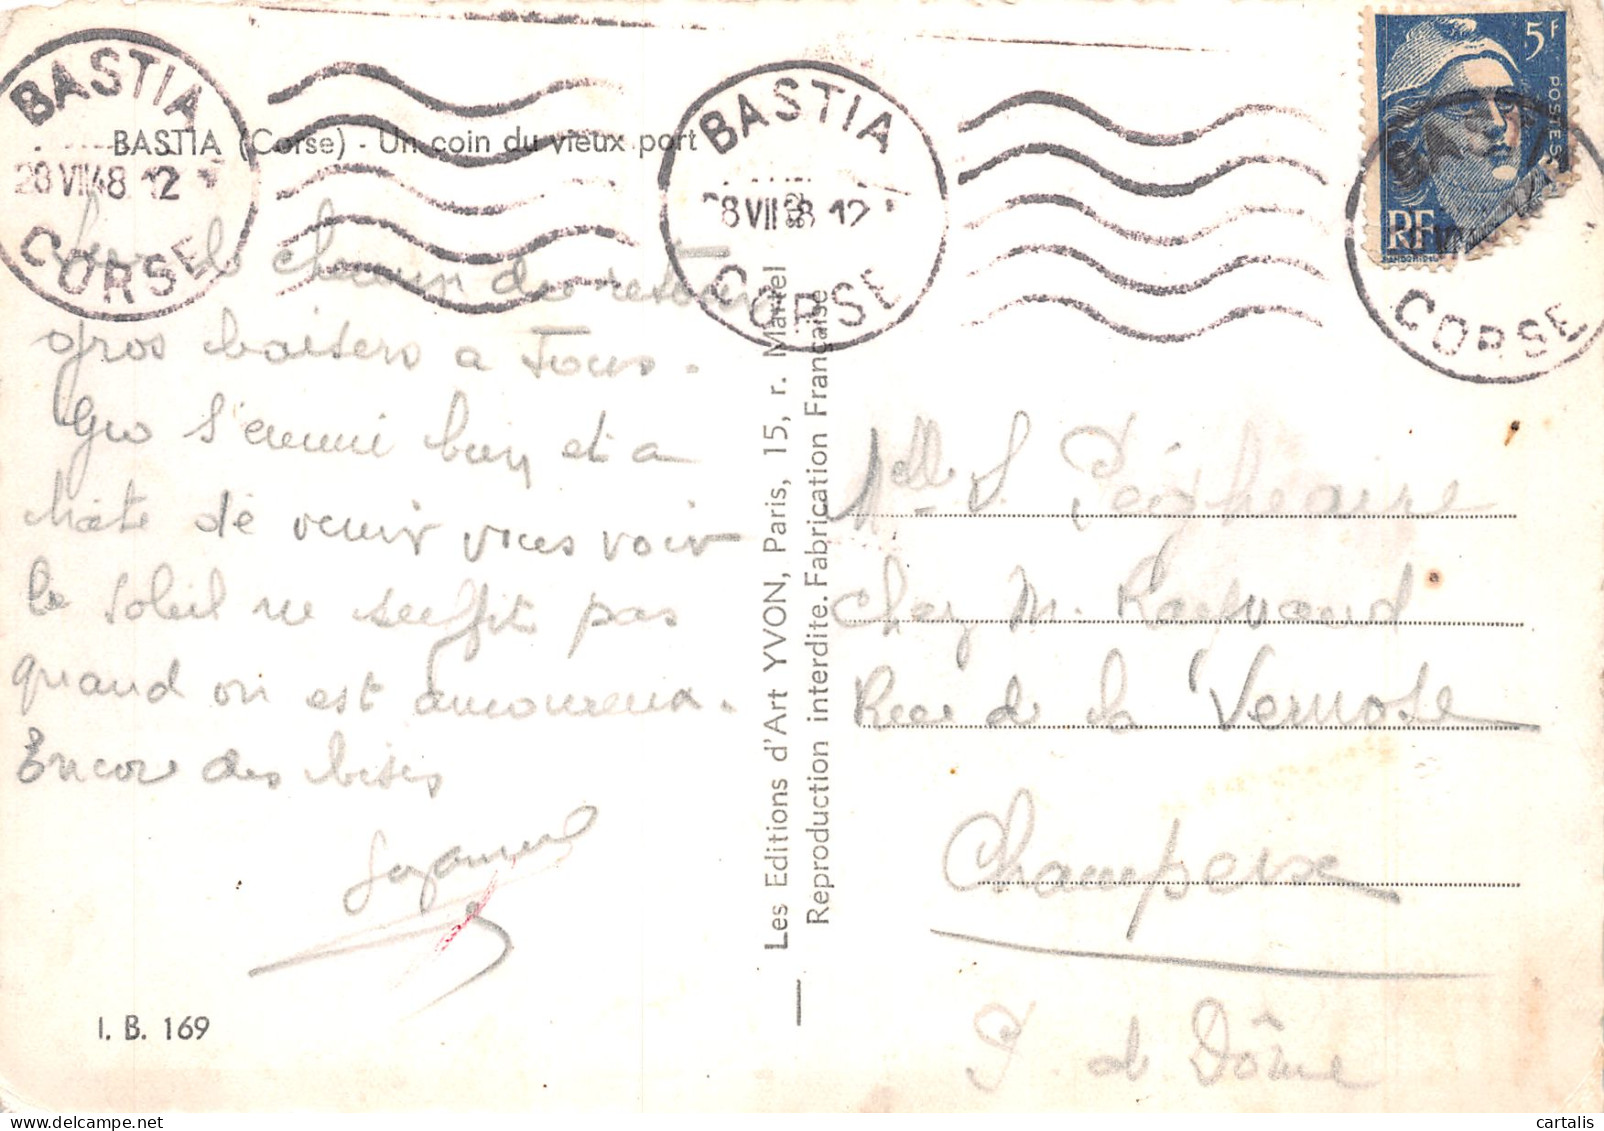 BASTIA
28 VII 48 12
CORSE
BASTIA
8 VII 12
CORSE
5F
POSTES
RF
CORSE
BASTIA (Corse) - Un coin du vieux port
Sur le chemin du retour
gros baisers a Tous.
s'ennui bien et a
hâte de venir vous voir
le soleil ne suffit pas
quand on est amoureux.
Encore des bises
Suzanne
I. B. 169
Les Editions d'Art YVON, Paris, 15, r. Martel
Reproduction interdite. Fabrication Française
Melle S.
chez M. Raynaud
Rue de la Vernose
Champeix
P de Dôme
cartalis
www.delcampe.net